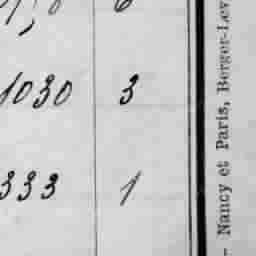 1030 3
333 1
- Nancy et Paris, Berger-Lev